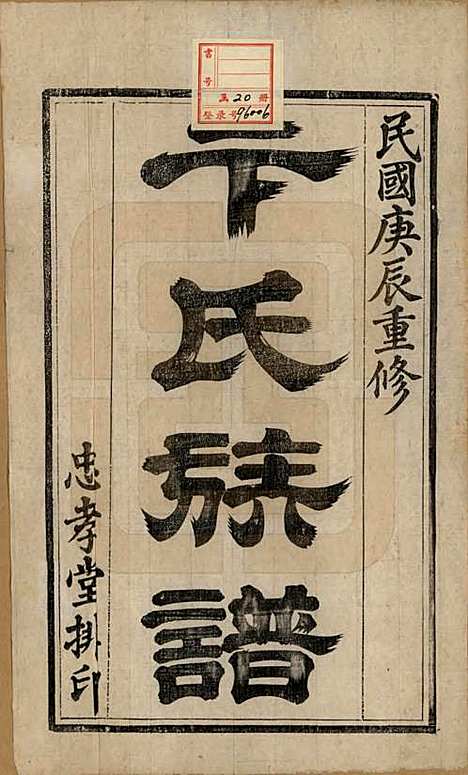 民國庚辰重修
卞氏族譜
忠孝堂排印
書號
共20冊
登录号96006